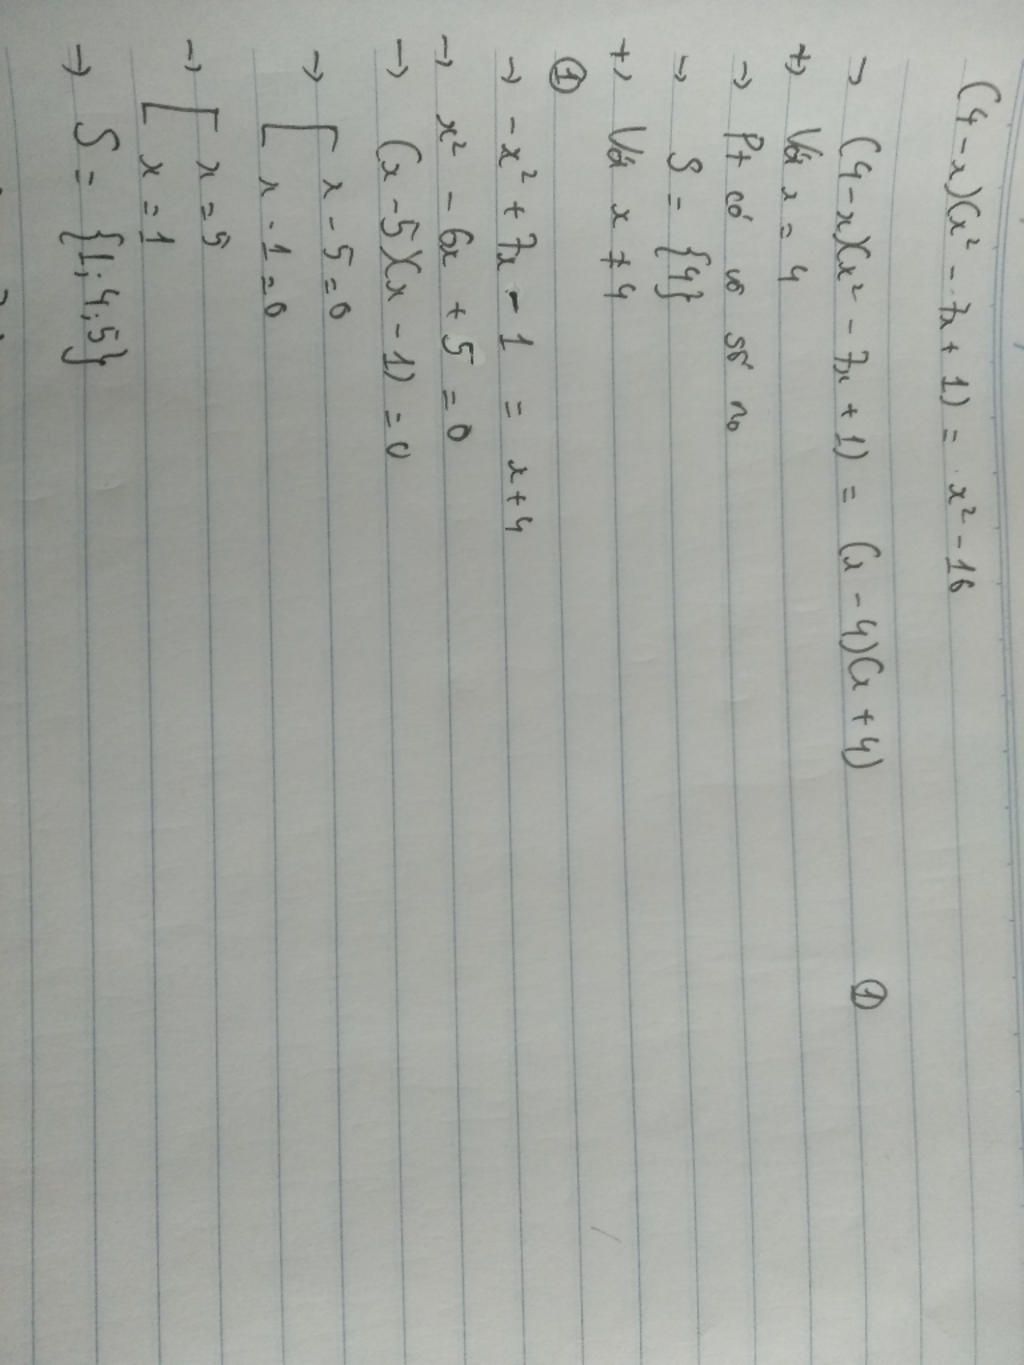 (4-x)(x² - 7x + 1) = x² - 16
→ (4-x)(x² - 7x + 1) = (x - 4)(x + 4) ①
+, Với x = 4
→ Pt có vô số no
→ S = {4}
+, Với x ≠ 4
①
→ -x² + 7x - 1 = x + 4
→ x² - 6x + 5 = 0
→ (x - 5)(x - 1) = 0
→ [ x - 5 = 0
x - 1 = 0
→ [ x = 5
x = 1
→ S = {1; 4; 5}